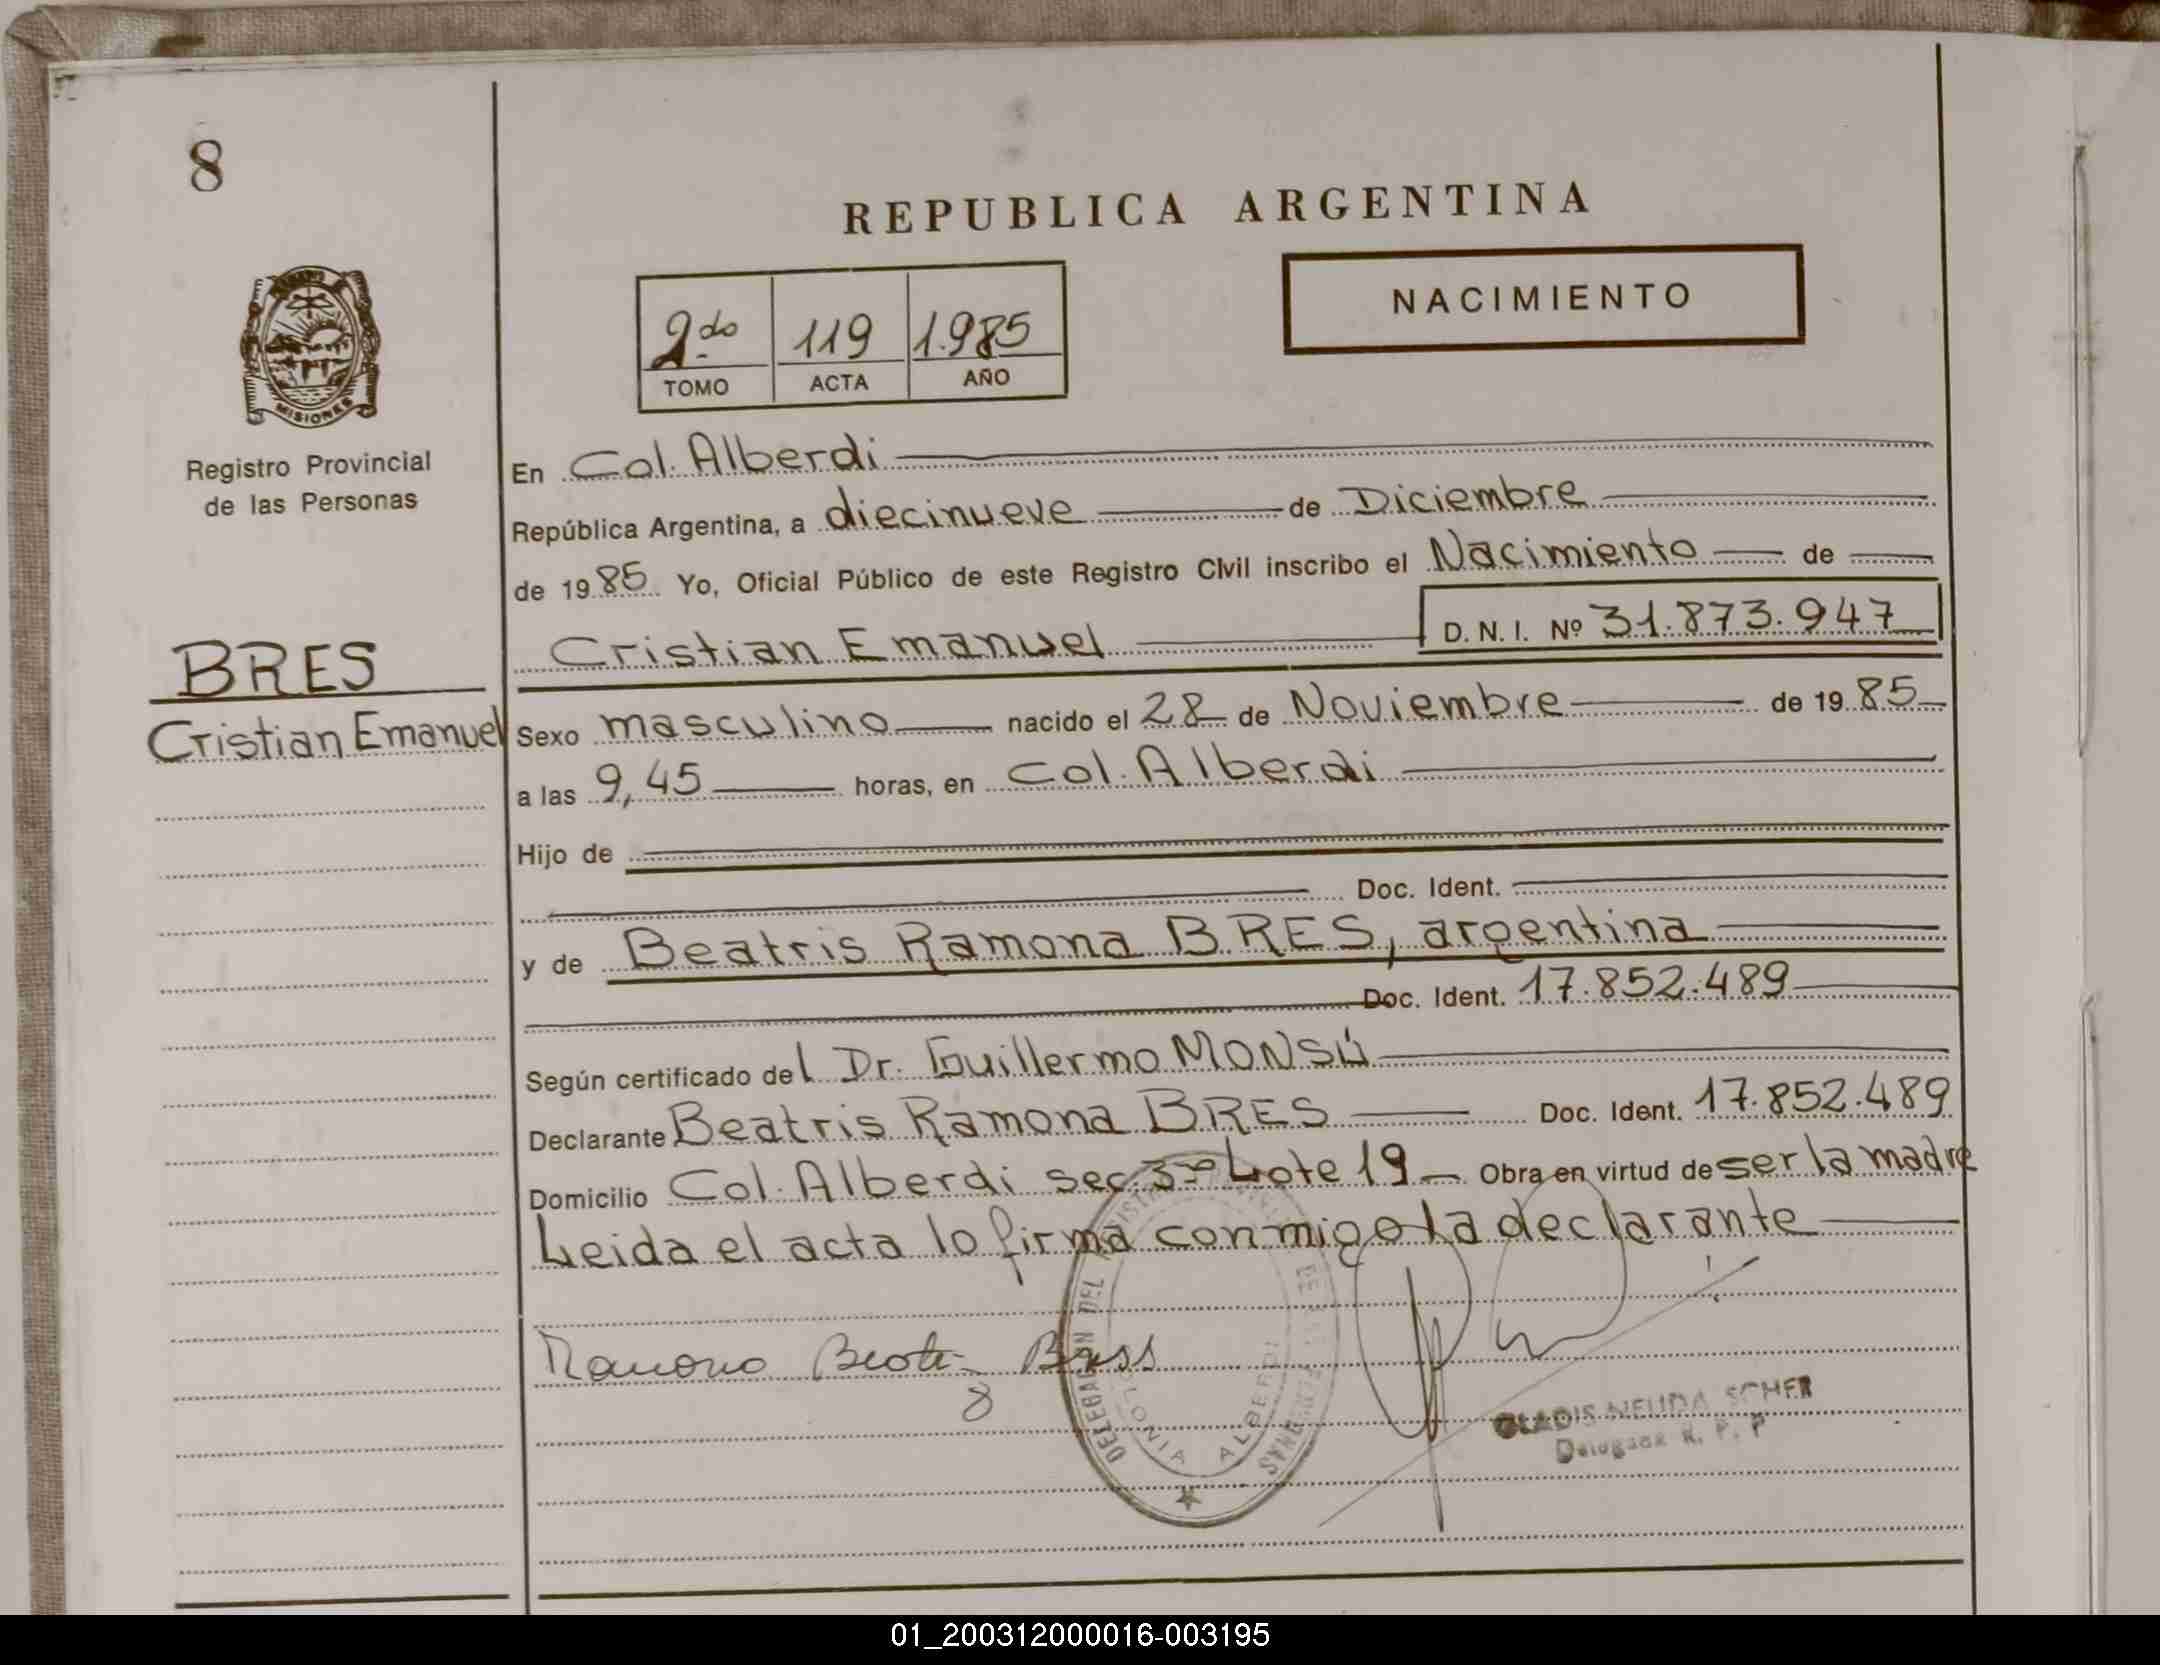 8
REPUBLICA ARGENTINA
NACIMIENTO
2do 119 1.985
TOMO ACTA AÑO
MISIONES
Registro Provincial
de las Personas
BRES
Cristian Emanuel
En Col. Alberdi
República Argentina, a diecinueve de Diciembre
de 1985 Yo, Oficial Público de este Registro Civil inscribo el Nacimiento de
Cristian Emanuel D. N. I. Nº 31.873.947
Sexo masculino nacido el 28 de Noviembre de 1985
a las 9,45 horas, en Col. Alberdi
Hijo de
Doc. Ident.
y de Beatris Ramona BRES, argentina
Doc. Ident. 17.852.489
Según certificado del Dr. Guillermo MONSÚ
Declarante Beatris Ramona BRES Doc. Ident. 17.852.489
Domicilio Col. Alberdi sec. 3ra Lote 19 Obra en virtud de ser la madre
Leida el acta lo firma conmigo la declarante
Ramona
8
DELEGACION DEL
COLONIA ALBERDI
GLADIS NELIDA SCHER
R. P. P
01_200312000016-003195